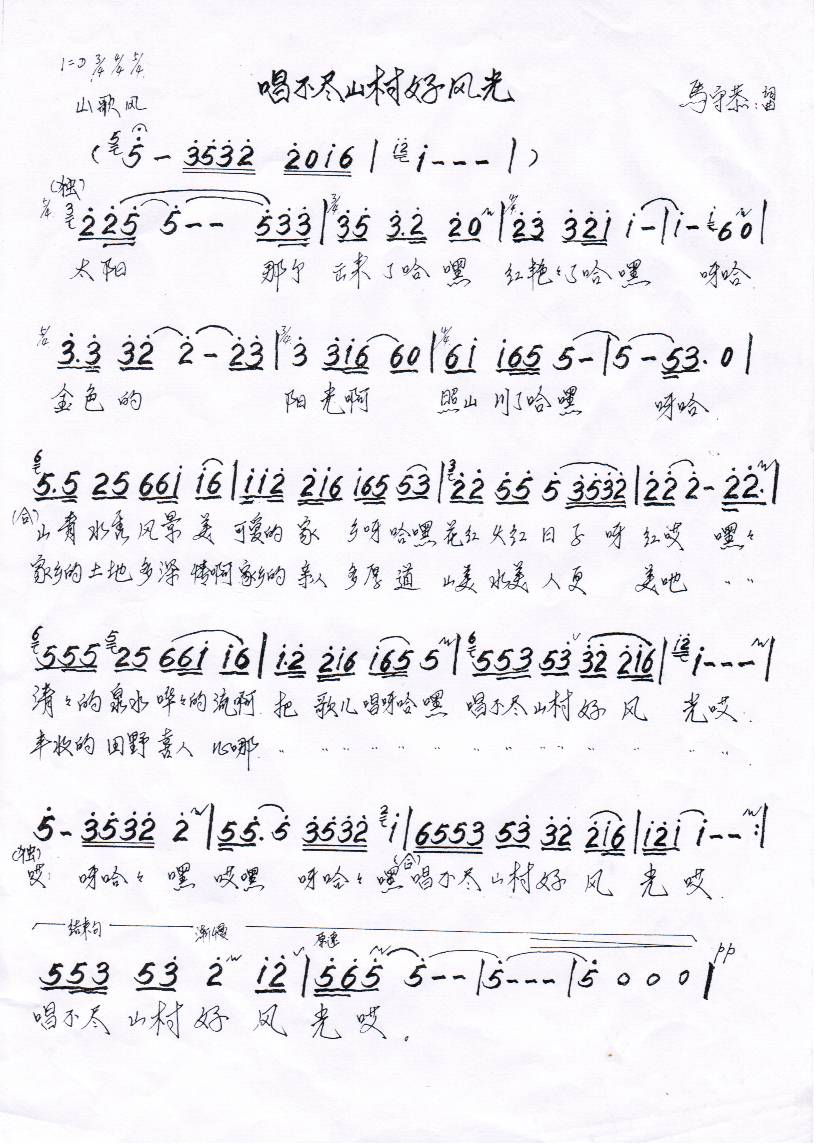 1=D 3/4 4/4 5/4
唱不尽山村好风光
山歌风
馬守恭
( 5 5 - 3532 2016 | i2 i - - - | )
(独)
225 5 - - 533 | 35 3.2 20 | 23 321 i - | i - i 60 |
太阳 那个 出来了哈嘿 红艳々了哈嘿 呀哈
3.3 32 2 - 23 | 3 3i6 60 | 6i i65 5 - | 5 - 53. 0 |
金色的 阳光啊 照山川了哈嘿 呀哈
5.5 25 66i i6 | ii2 2i6 i65 53 | 22 55 5 3532 | 22 2 - 22. |
(合) 山青水秀风景美 可爱的家 乡呀哈嘿花红火红日子呀 红哎 嘿々
家乡的土地多深情啊家乡的亲人 多厚道 山美水美人更 美吔 〃〃
555 25 66i i6 | i.2 2i6 i65 5 | 5553 53 32 2i6 | i2 i - - - |
清々的泉水哗々的流啊 把歌儿唱呀哈嘿 唱不尽山村好风 光哎
丰收的田野喜人心哪 〃 〃 〃 〃 〃 〃 〃 〃 〃 〃 〃 〃 〃 〃
5 - 3532 2 | 55. 5 3532 2 i | 6553 53 32 2i6 | i2i i - - :|
(独) 哎 呀哈々嘿 哎嘿 呀哈々嘿 (合) 唱不尽山村好风 光哎
结束句 渐慢 原速
553 53 2 i2 | 565 5 - - | 5 - - - | 5 0 0 0 | pp
唱不尽山村好风光哎。